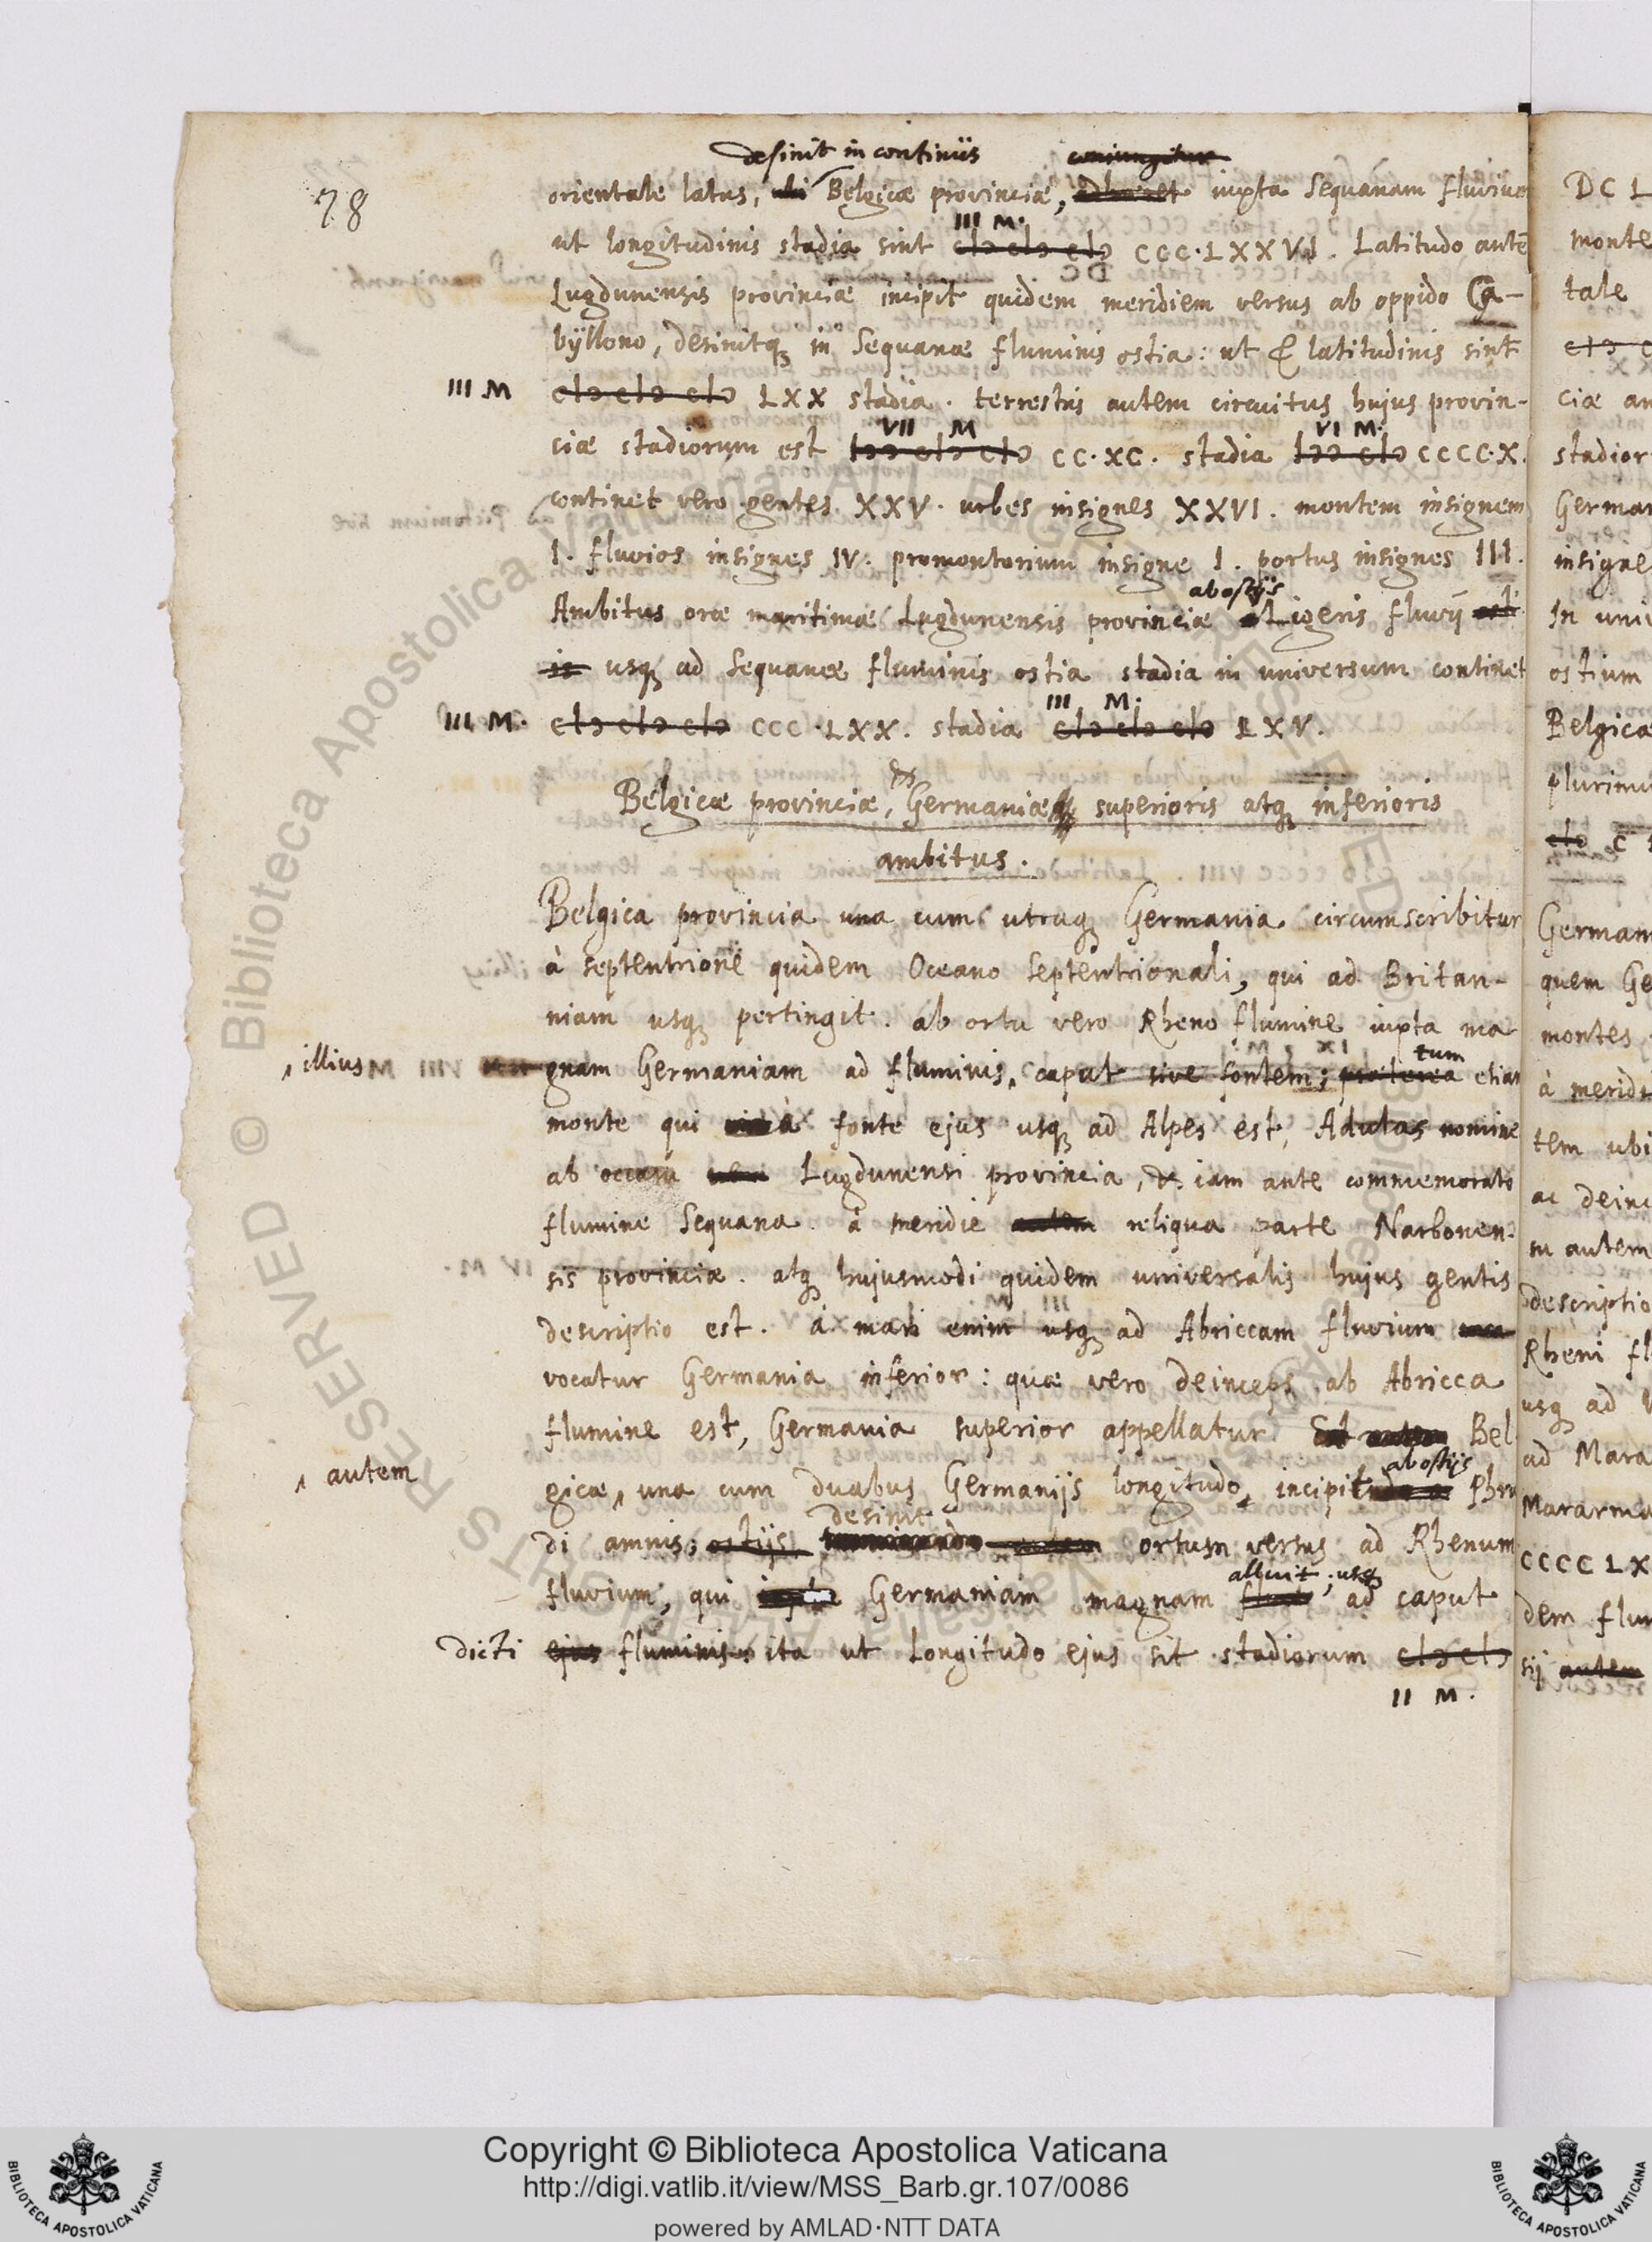 78
desinit in confinijs coniungitur
orientale latus, Belgicæ provinciæ, adhæret iuxta Sequanam fluvium
III M.
ut longitudinis stadia sint cIↄ cIↄ cIↄ CCC·LXXVI. Latitudo autē
Lugdunensis provinciæ incipit quidem meridiem versus ab oppido Ca-
byllono, desinitq in Sequanæ fluminis ostia: ut & latitudinis sint
III M cIↄ cIↄ cIↄ LXX stadia. terrestris autem circuitus hujus provin-
VII M VI M.
ciæ stadiorum est Iↄↄ cIↄ cIↄ CC·XC. stadia Iↄↄ cIↄ CCCC·X.
continet vero gentes XXV. urbes insignes XXVI. montem insignem
I. fluvios insignes IV. promontorium insigne I. portus insignes III.
ab ostijs
Ambitus oræ maritimæ Lugdunensis provinciæ a Ligeris fluvij osti
is usq ad Sequanæ fluminis ostia stadia in universum continet
III M.
III M. cIↄ cIↄ cIↄ CCC·LXX. stadia cIↄ cIↄ cIↄ LXV.
Belgicæ provinciæ, & Germaniæ superioris atq inferioris
ambitus.
Belgica provincia una cum utraq Germania circumscribitur
à septentrione quidem Oceano Septentrionali, qui ad Britan-
niam usq pertingit. ab ortu vero Rheno flumine iuxta ma
tum
illius gnam Germaniam ad fluminis caput sive fontem; præterea etiam
monte qui à fonte ejus usq ad Alpes est, Adulas nomine
ab occasu vero Lugdunensi provincia, & iam ante commemorato
flumine Sequana. à meridie autem reliqua parte Narbonen-
sis provinciæ. atq hujusmodi quidem universalis hujus gentis
descriptio est. à mari enim usq ad Abriccam fluvium
vocatur Germania inferior: quæ vero deinceps ab Abricca
flumine est, Germania superior appellatur. Est autem Bel
autem ab ostijs
gicæ, una cum duabus Germanijs longitudo, incipit Phru
desinit
di amnis, ostijs, ortum versus ad Rhenum
alluit, usq
fluvium, qui Germaniam magnam ad caput
dicti ejus fluminis, ita ut Longitudo ejus sit stadiorum cIↄ cIↄ
II M.
DC L
monte
tale
cIↄ c
ciæ au
stadior
German
insigne
In univ
ostium
Belgicæ
plurimu
cIↄ C
German
quem Ge
montes
à meridi
tem ubi
ac deinc
autem
descriptio
Rheni fl
usq ad
ad Mara
Mararma
CCCC LX
dem flum
sij autem
Copyright © Biblioteca Apostolica Vaticana
http://digi.vatlib.it/view/MSS_Barb.gr.107/0086
powered by AMLAD·NTT DATA
BIBLIOTECA APOSTOLICA VATICANA
BIBLIOTECA APOSTOLICA VATICANA